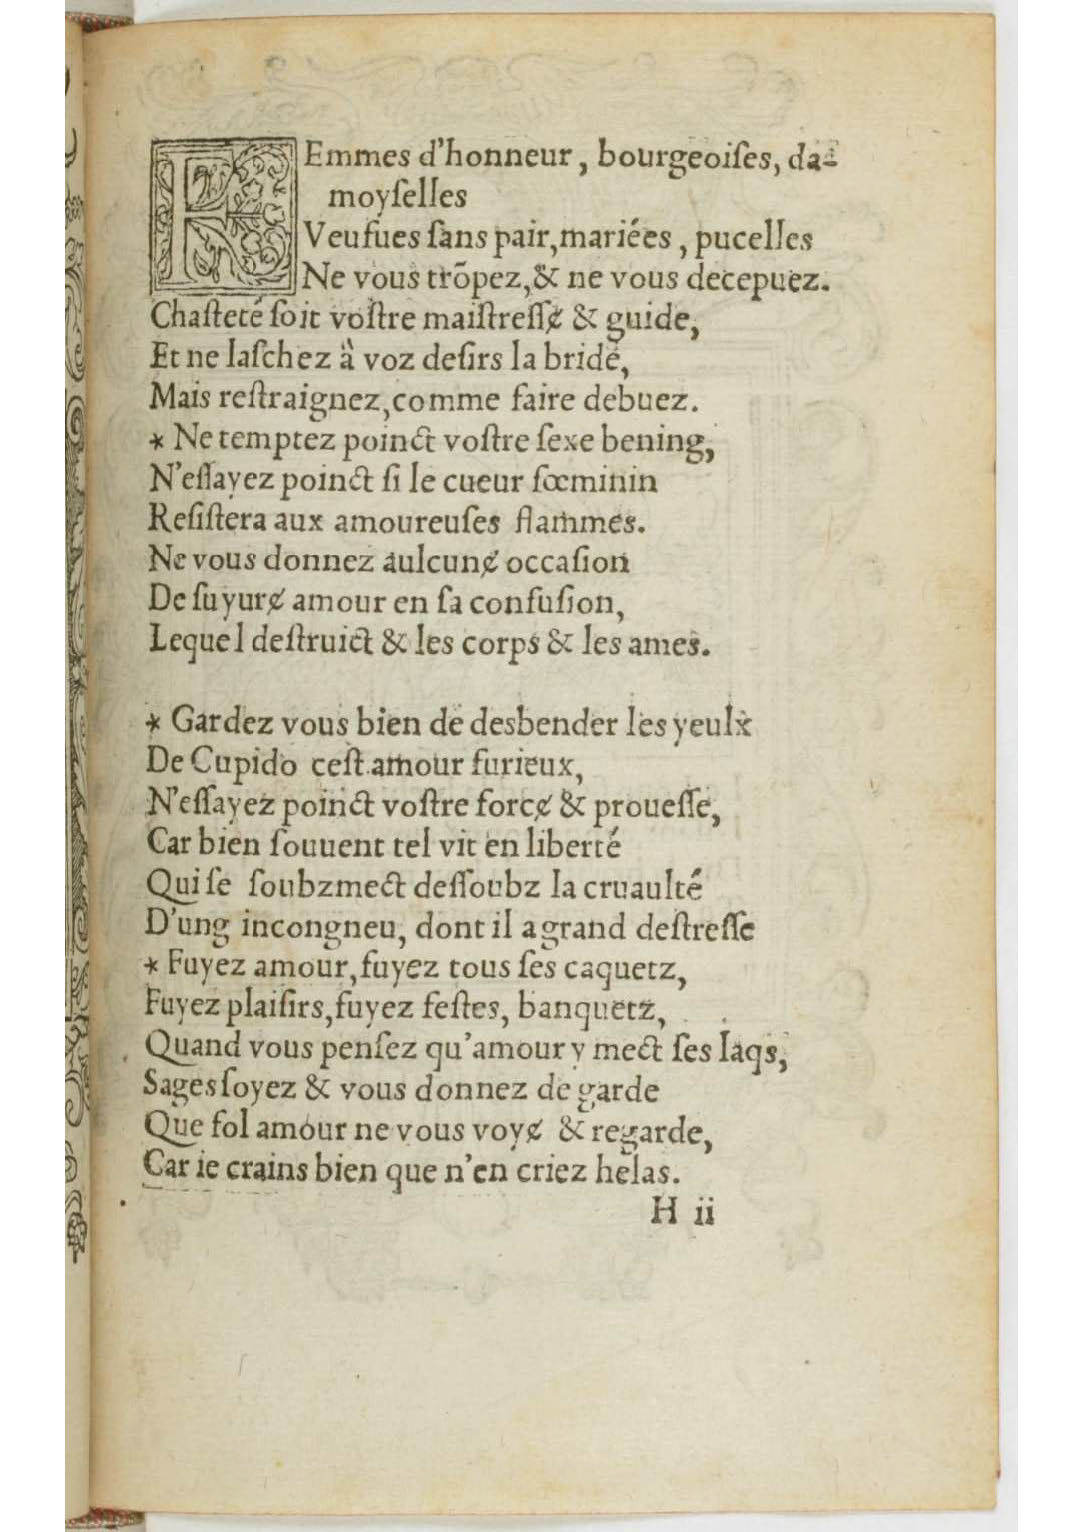 FEmmes d'honneur, bourgeoiſes, da-
moyſelles
Veufues ſans pair, mariées, pucelles
Ne vous trõpez, & ne vous decepuez.
Chaſteté ſoit voſtre maiſtreſſɇ & guide,
Et ne laſchez à voz deſirs la bride,
Mais reſtraignez, comme faire debuez.
* Ne temptez poinct voſtre ſexe bening,
N'eſſayez poinct ſi le cueur fœminin
Reſiſtera aux amoureuſes flammes.
Ne vous donnez aulcunɇ occaſion
De ſuyurɇ amour en ſa confuſion,
Lequel deſtruict & les corps & les ames.
* Gardez vous bien de desbender les yeulx
De Cupido ceſt amour furieux,
N'eſſayez poinct voſtre forcɇ & proueſſe,
Car bien ſouuent tel vit en liberté
Qui ſe ſoubzmect deſſoubz la cruaulté
D'ung incongneu, dont il a grand deſtreſſe
* Fuyez amour, fuyez tous ſes caquetz,
Fuyez plaiſirs, fuyez feſtes, banquetz,
Quand vous penſez qu'amour y mect ſes laqs,
Sages ſoyez & vous donnez de garde
Que fol amour ne vous voyɇ & regarde,
Car ie crains bien que n'en criez helas.
H ii